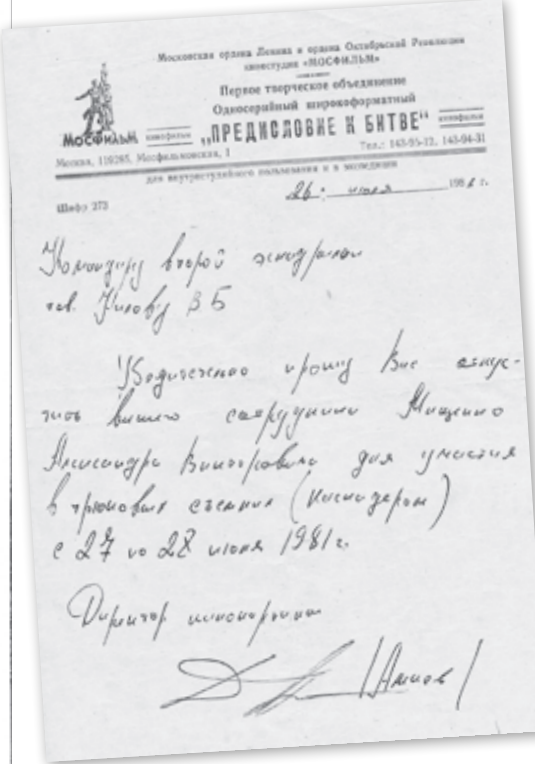 Московская ордена Ленина и ордена Октябрьской Революции
киностудия «МОСФИЛЬМ»
Первое творческое объединение
Односерийный широкоформатный
МОСФИЛЬМ кинофильм „ПРЕДИСЛОВИЕ К БИТВЕ“ кинофильм
Москва, 119285, Мосфильмовская, 1 Тел.: 143-95-12, 143-94-31
для внутристудийного пользования и в экспедиции
Шифр 273 26. июня 1981 г.
Командиру второй эскадрильи
тов. В Б
Убедительно прошу Вас отпус-
тить вашего сотрудника Мищенко
Александра Викторовича для участия
в трюковых съемках (каскадером)
с 27 по 28 июня 1981г.
Директор кинокартины